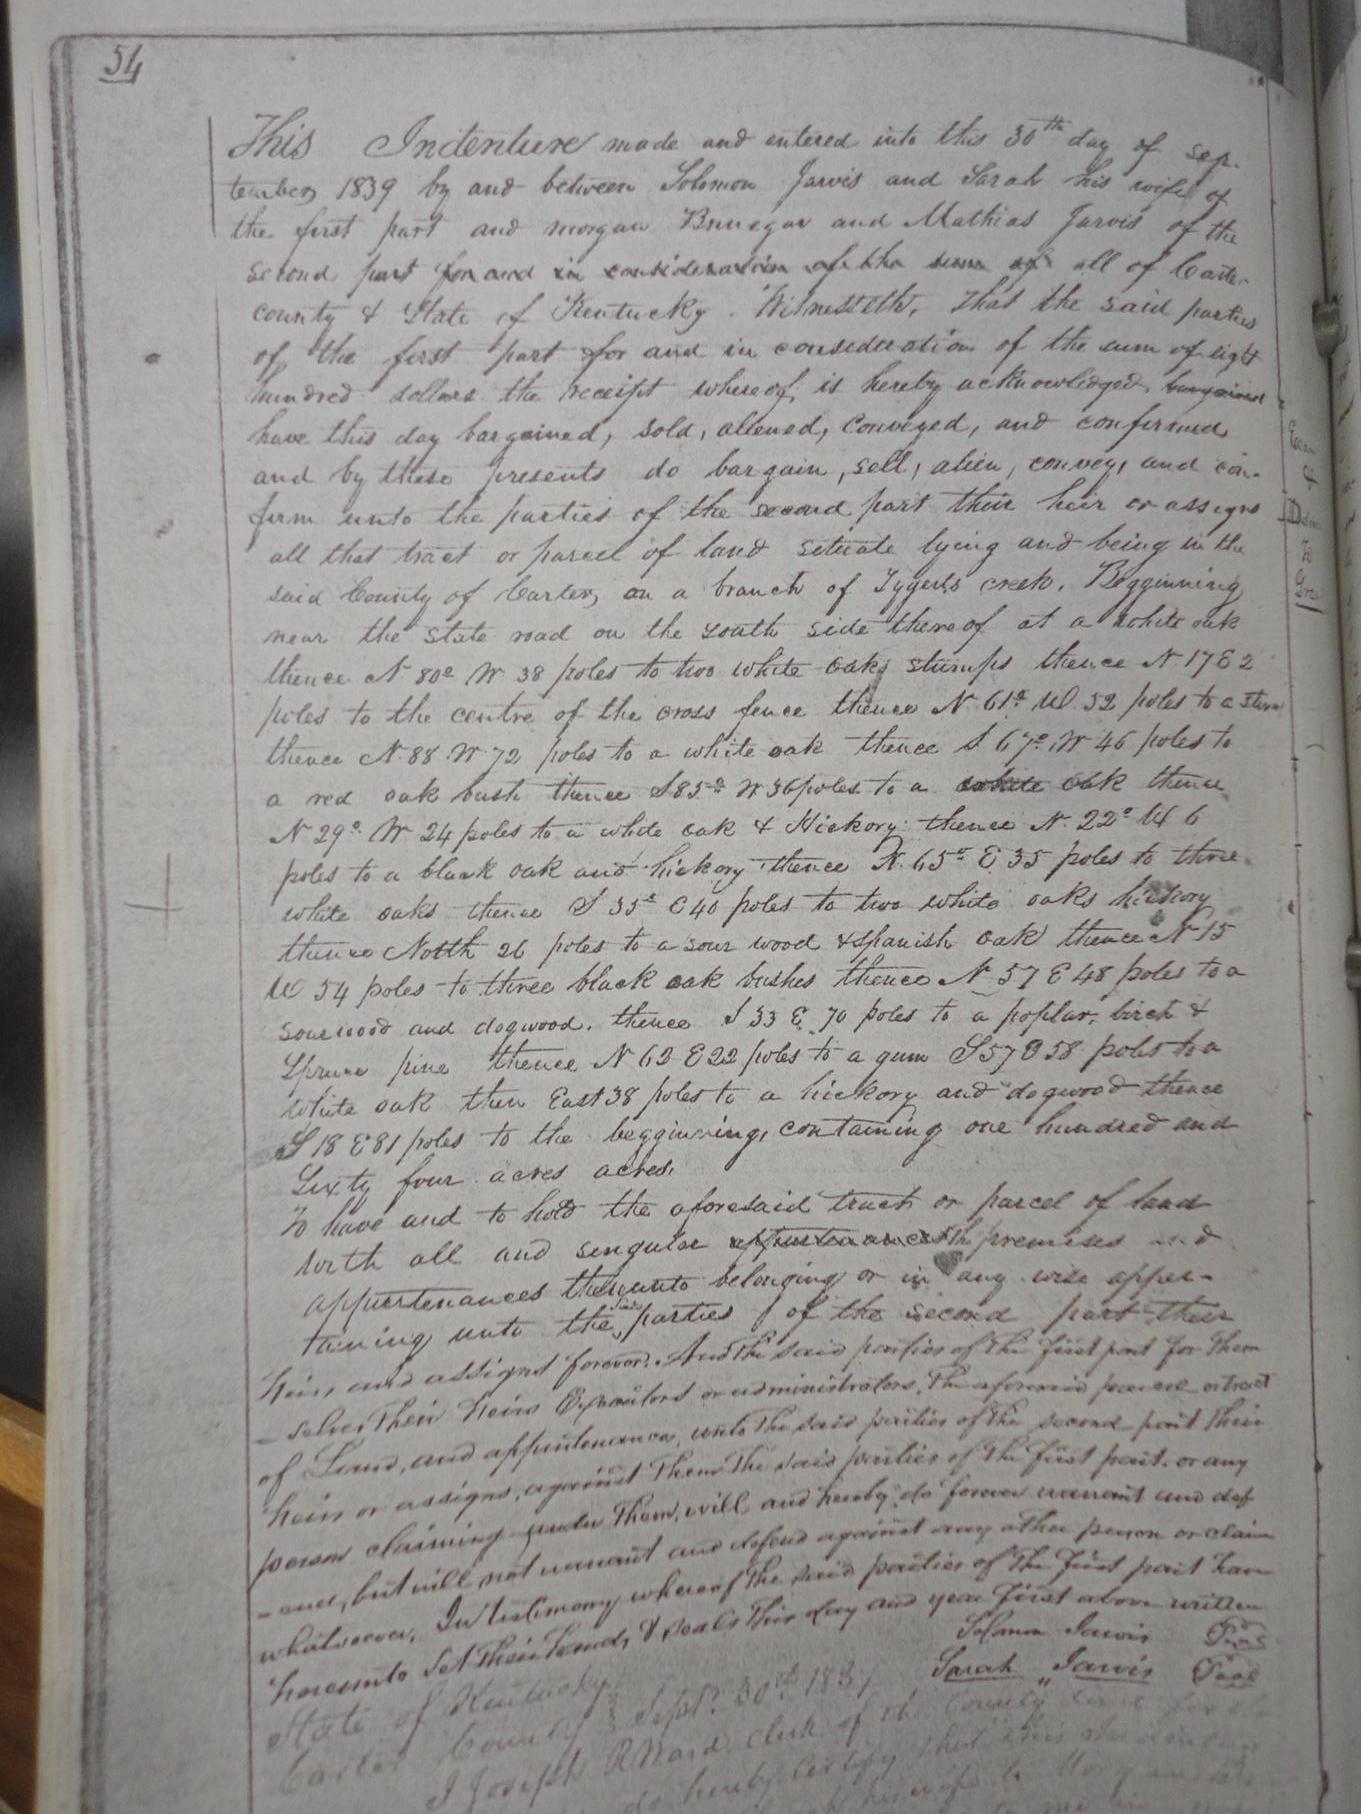 54
This Indenture made and entered into this 30th day of Sep-
tember 1839 by and between Solomon Jarvis and Sarah his wife of
the first part and morgan Brnegar and Mathias Jarvis of the
second part for and in consideration of the sum of all of Carter
county & State of Kentucky. Witnesseth, that the said parties
of the first part for and in consideration of the sum of eight
hundred dollars the receipt whereof, is hereby acknowledged bargained
have this day bargained, sold, aliened, conveyed, and confirmed
and by these presents do bargain, sell, alien, convey, and con-
firm unto the parties of the second part their heir or assigns
all that tract or parcel of land situate lying and being in the
said County of Carter, on a branch of Tygerts creek. Begginning
near the state road on the south side thereof at a white oak
thence N 80° W 38 poles to two white oaks stumps thence N 17 E 2
poles to the centre of the cross fence thence N. 61° W. 52 poles to a
thence N. 88 W 72 poles to a white oak thence S 67° W 46 poles to
a red oak bush thence S 85° W 36 poles to a white oak thence
N 29° W 24 poles to a white oak & Hickory thence N. 22° W 6
poles to a black oak and hickory thence N. 65° E 35 poles to three
white oaks thence S 35° E 40 poles to two white oaks hickory
thence North 26 poles to a sour wood & spanish oak thence N 15
W 54 poles to three black oak bushes thence N 57 E 48 poles to a
sourwood and dogwood. thence S 33 E 70 poles to a poplar, birch &
Spruce pine thence N 62 E 22 poles to a gum S 57 E 58 poles to a
white oak then East 38 poles to a hickory and dogwood thence
S 18 E 81 poles to the beggining, containing one hundred and
Sixty four acres acres.
To have and to hold the aforesaid tract or parcel of land
with all and singular appurtenances the premises and
appurtenances thereunto belonging or in any wise apper-
taining unto the said parties of the second part their
heirs and assigns forever. And the said parties of the first part for them
-selves their heirs Executors or administrators, the aforesaid parcel or tract
of Land, and appurtenance, unto the said parties of the second part their
heirs or assigns, against them the said parties of the first part, or any
person claiming under them, will and hereby do forever warrant and def
-end, but will not warrant and defend against any other person or claim
whatsoever, In testimony whereof the said parties of the first part have
hereunto set their hands & seals this day and year first above written
Solomon Jarvis Seal
Sarah Jarvis Seal
State of Kentucky
Carter County Sept. 30th 1839
I Joseph R Ward clerk of the County
do hereby certify that this Indenture